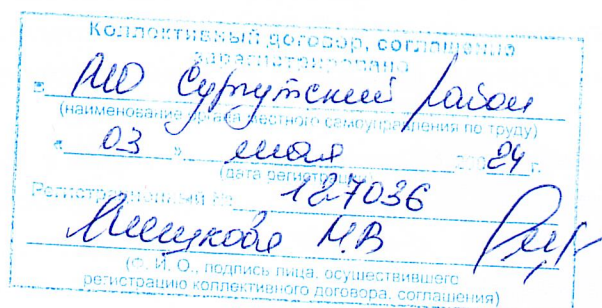 Коллективный договор, соглашение
зарегистрировано
в МО Сургутский район
(наименование органа местного самоуправления по труду)
« 03 » мая 20024 г.
(дата регистрации)
Регистрационный № 127036
Н.В
(Ф. И. О., подпись лица, осуществившего
регистрацию коллективного договора, соглашения)